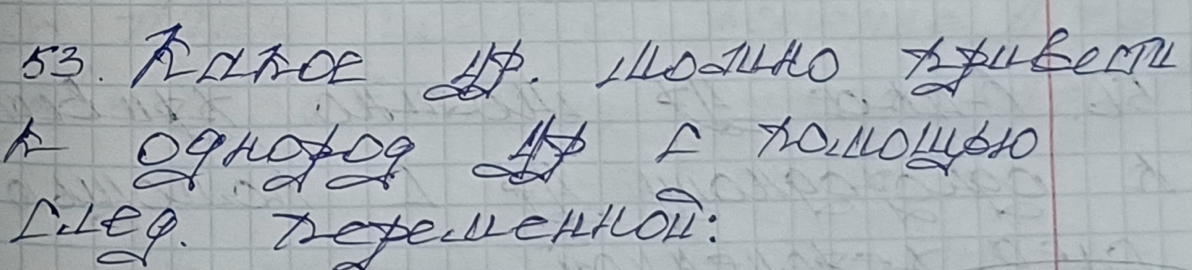 53. Какое ДУ. можно привести
к однород ДУ с помощью
след. переменной: